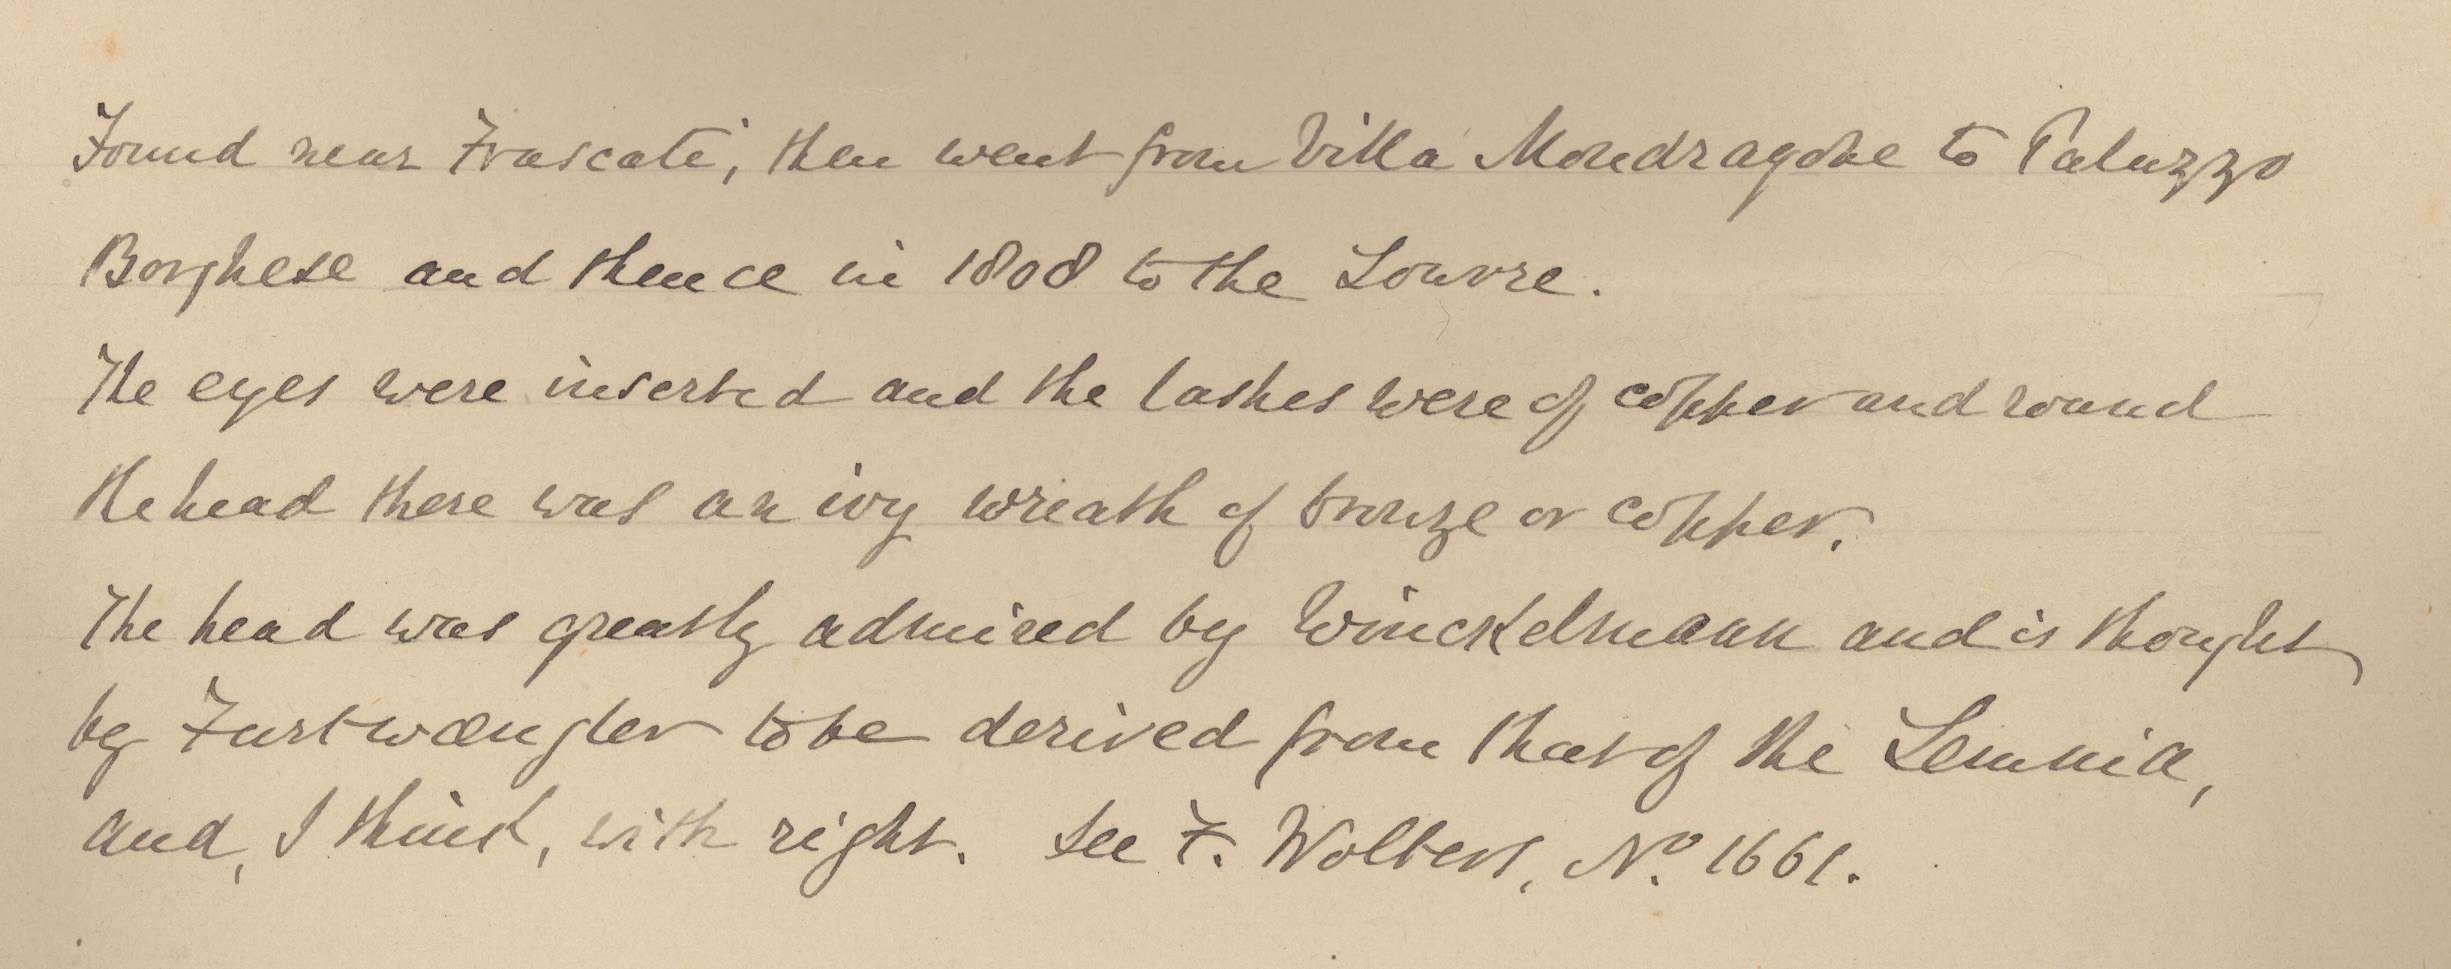 Found near Frascati; then went from Villa Mondragone to Palazzo
Borghese and thence in 1808 to the Louvre.
The eyes were inserted and the lashes were of copper and round
the head there was an ivy wreath of bronze or copper.
The head was greatly admired by Winckelmann and is thought
by Furtwængler to be derived from that of the Lemnia,
and, I think, with right. See F. Wolters, No. 1661.